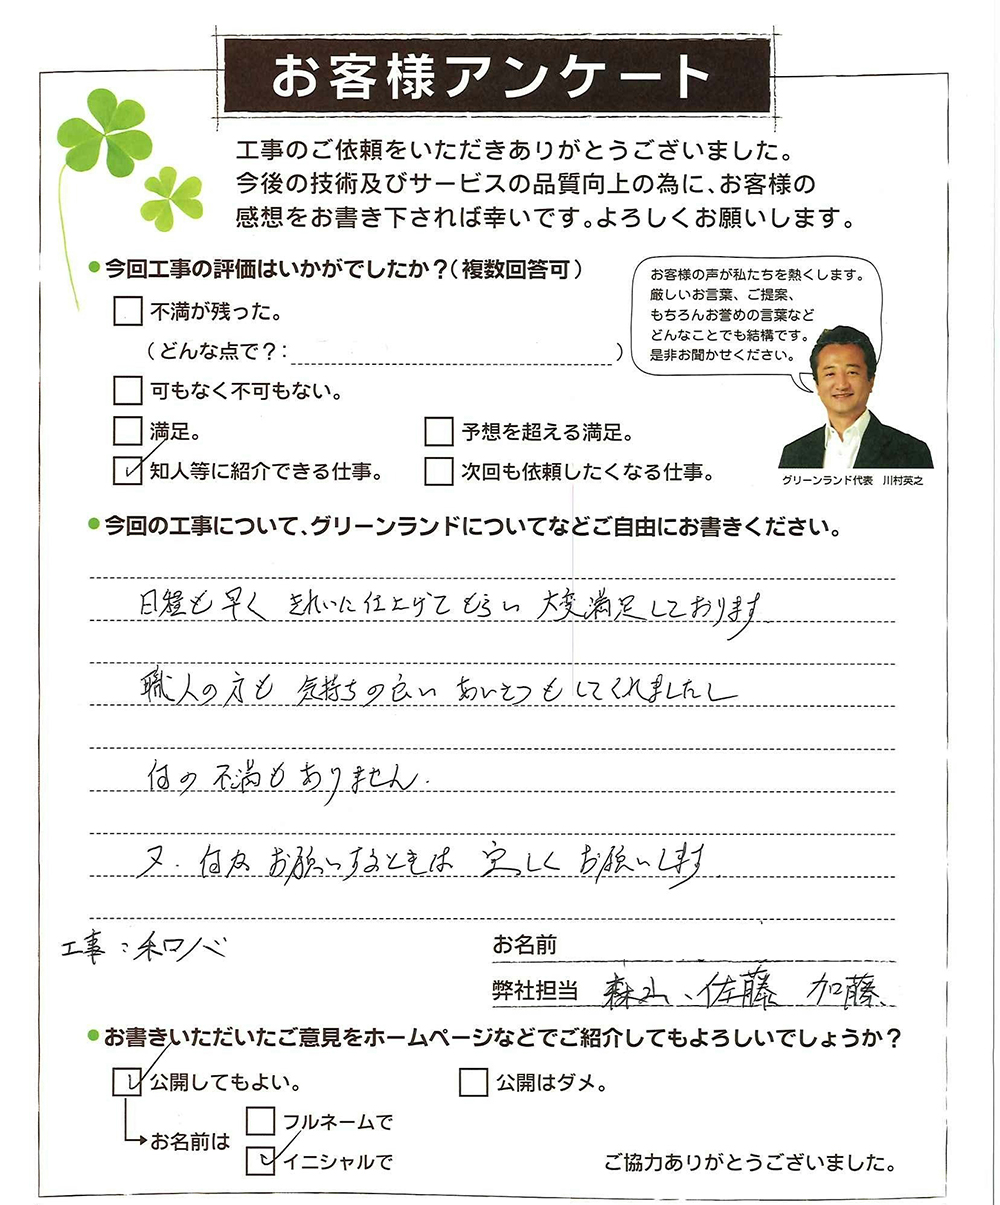 お客様アンケート
工事のご依頼をいただきありがとうございました。
今後の技術及びサービスの品質向上の為に、お客様の
感想をお書き下されば幸いです。よろしくお願いします。
●今回工事の評価はいかがでしたか？（複数回答可）
不満が残った。
（どんな点で？： ）
可もなく不可もない。
満足。
予想を超える満足。
知人等に紹介できる仕事。
次回も依頼したくなる仕事。
お客様の声が私たちを熱くします。
厳しいお言葉、ご提案、
もちろんお誉めの言葉など
どんなことでも結構です。
是非お聞かせください。
グリーンランド代表 川村英之
●今回の工事について、グリーンランドについてなどご自由にお書きください。
日程も早く きれいに仕上げてもらい 大変満足しております
職人の方も 気持ちの良い あいさつもしてくれましたし
何の不満もありません.
又. 何かお願いするときは 宜しくお願いします
工事：和リノベ
お名前
弊社担当 森山、佐藤 加藤
●お書きいただいたご意見をホームページなどでご紹介してもよろしいでしょうか？
公開してもよい。
公開はダメ。
お名前は
フルネームで
イニシャルで
ご協力ありがとうございました。